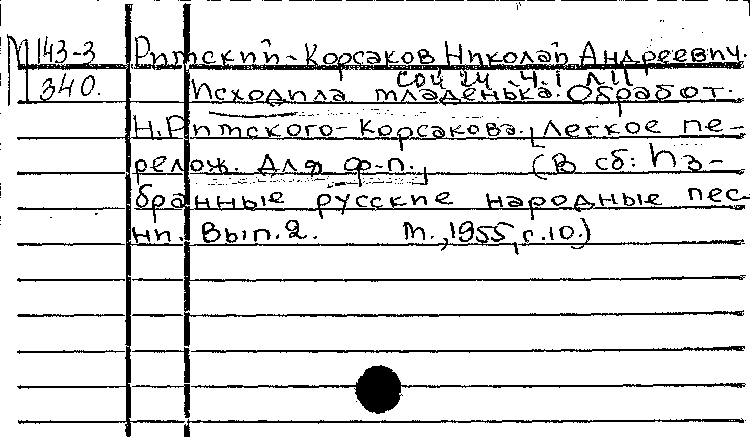 М 143-3 Римский-Корсаков Николай Андреевич.
340. соч 24 ч.1 №11
Исходила младенька. Обработ.
Н.Римского-Корсакова. Легкое пе-
релож. для ф-п. (В сб: Из-
бранные русские народные пес-
ни. Вып.2. М.,1955,с.10.)